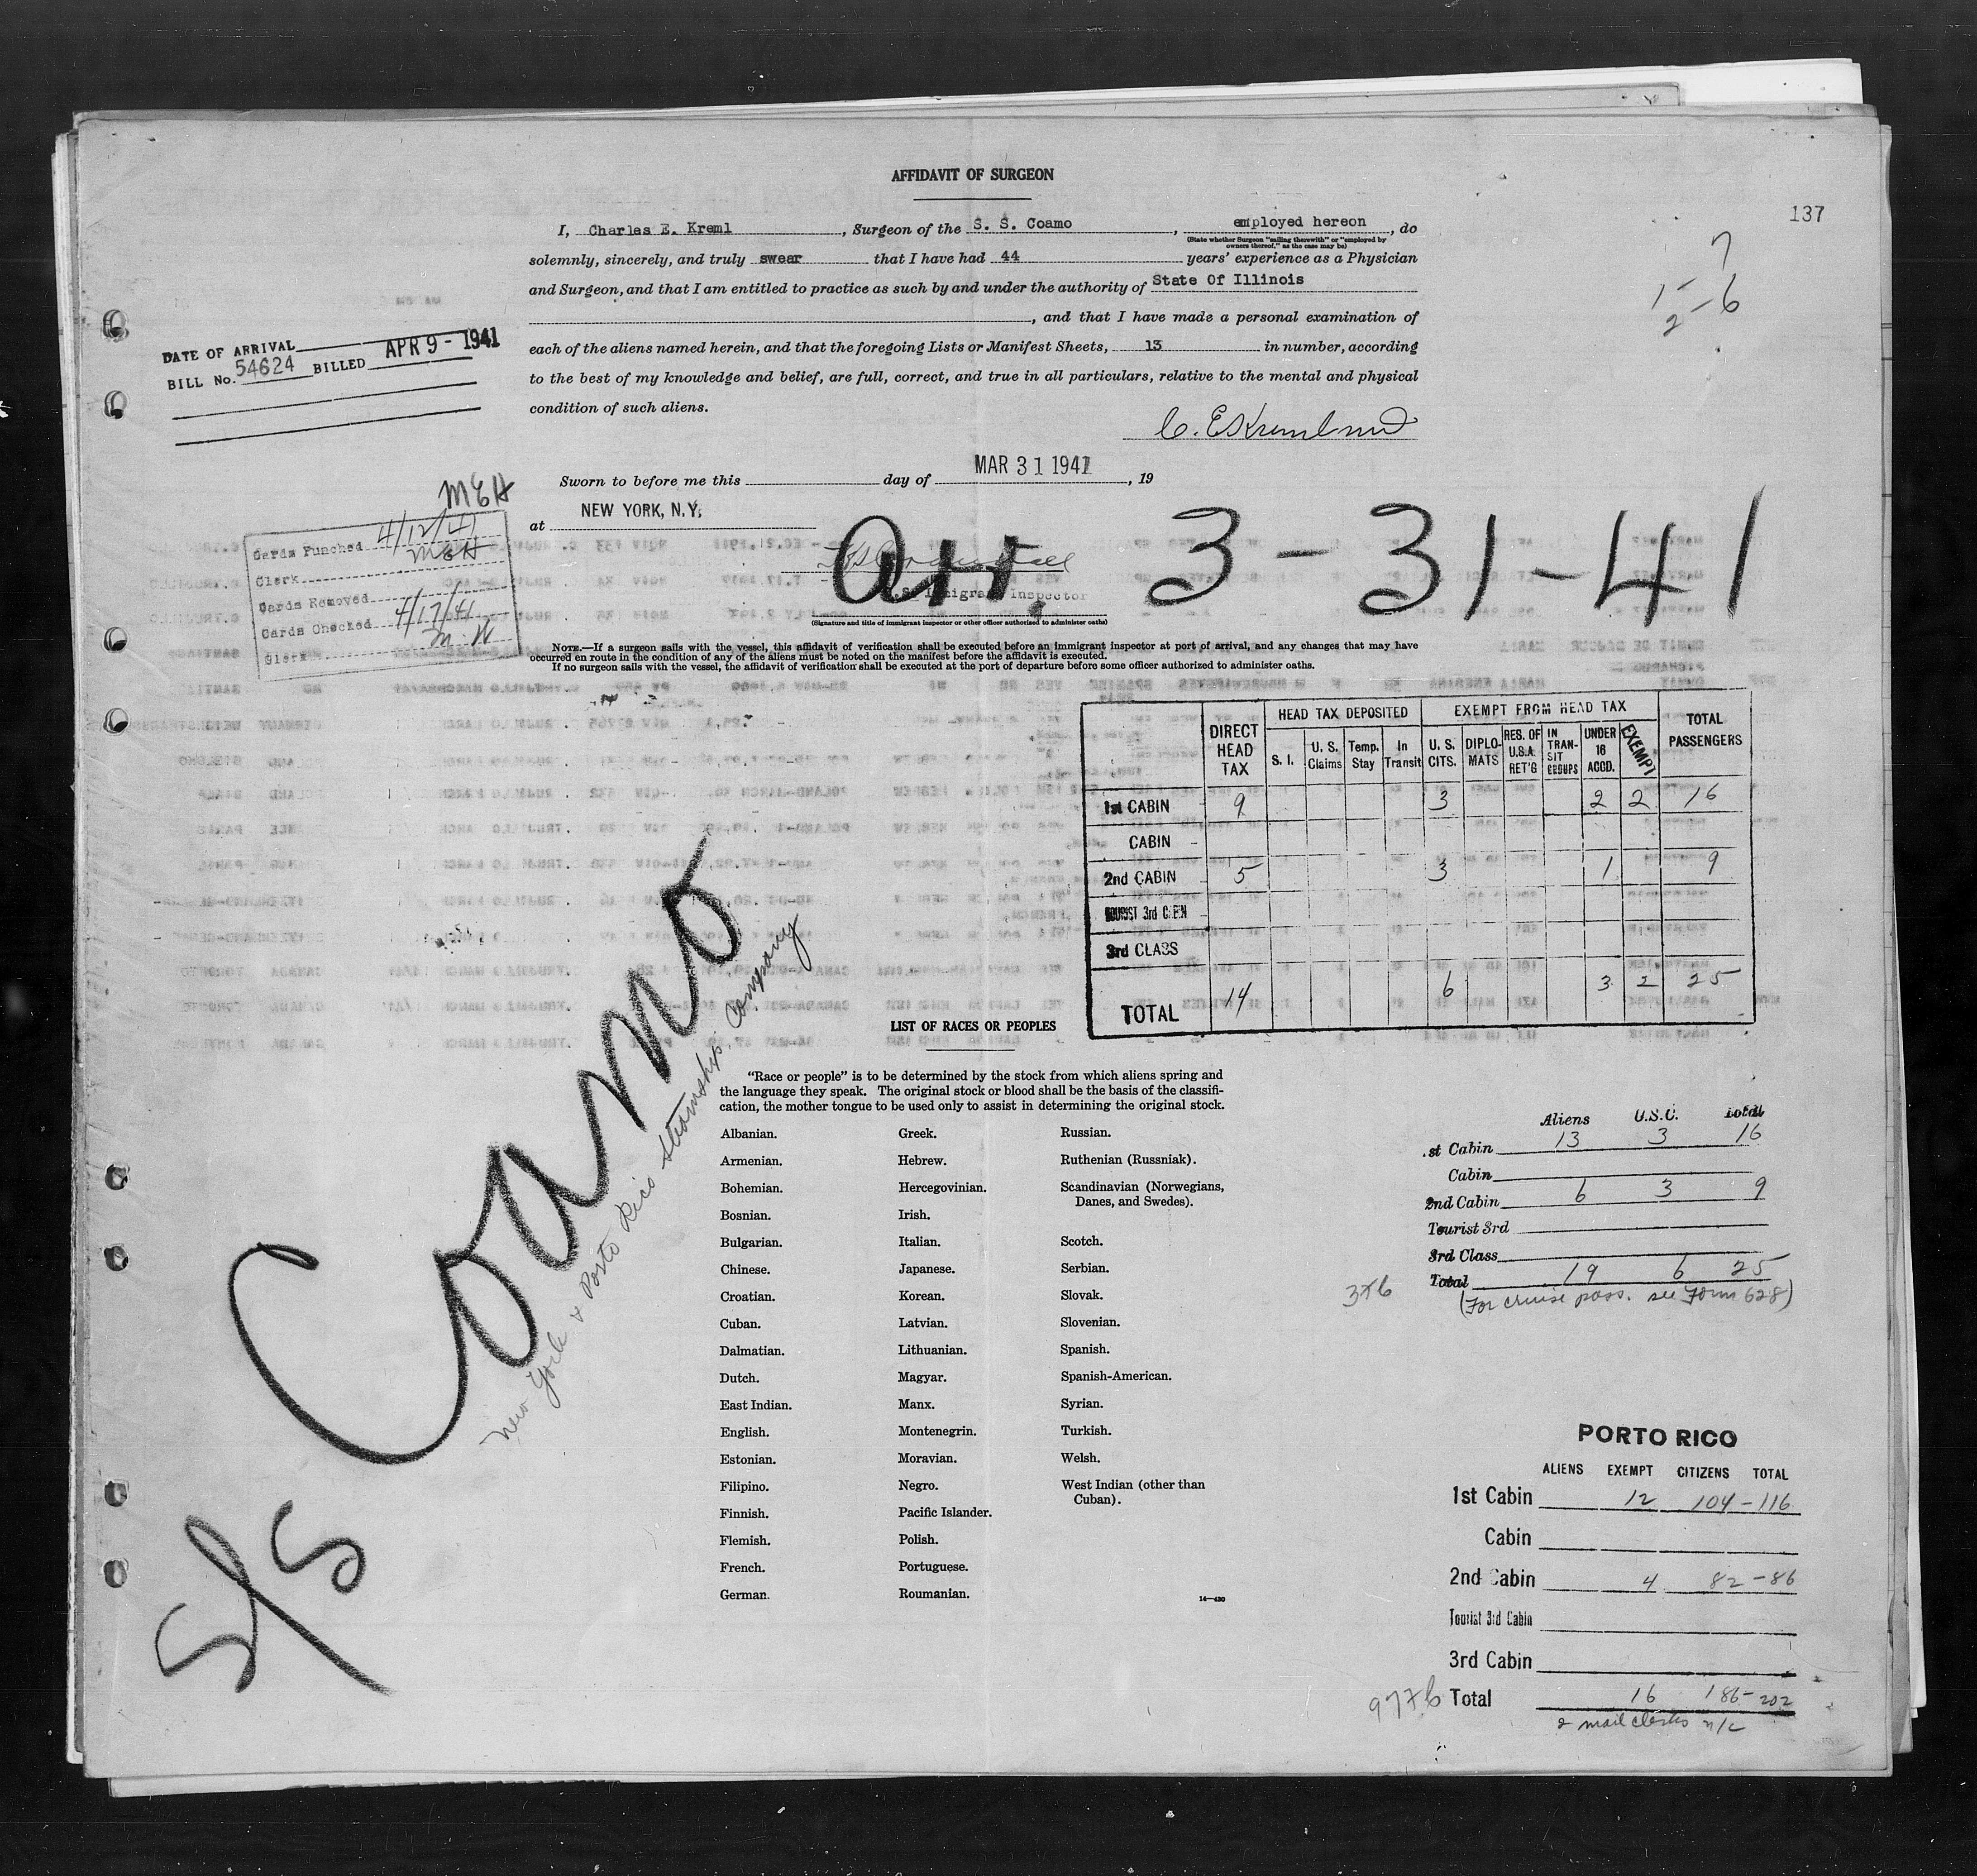 AFFIDAVIT OF SURGEON
137
I, Charles E. Kreml, Surgeon of the S. S. Coamo, employed hereon, do
(State whether Surgeon "sailing therewith" or "employed by
owners thereof," as the case may be)
solemnly, sincerely, and truly swear that I have had 44 years' experience as a Physician
and Surgeon, and that I am entitled to practice as such by and under the authority of State Of Illinois
, and that I have made a personal examination of
each of the aliens named herein, and that the foregoing Lists or Manifest Sheets, 13 in number, according
to the best of my knowledge and belief, are full, correct, and true in all particulars, relative to the mental and physical
condition of such aliens.
7
1 - 6
2
DATE OF ARRIVAL
BILL No. 54624 BILLED APR 9 - 1941
C. E. Kreml md
Sworn to before me this day of MAR 31 1941, 19
at NEW YORK, N.Y.
MEH
Cards Punched 4/12/41
Clerk MEH
Cards Removed
Cards Checked 4/17/41
Clerk M. H
arr. 3-31-41
U.S. Immigrant Inspector
(Signature and title of immigrant inspector or other officer authorized to administer oaths)
NOTE.—If a surgeon sails with the vessel, this affidavit of verification shall be executed before an immigrant inspector at port of arrival, and any changes that may have
occurred en route in the condition of any of the aliens must be noted on the manifest before the affidavit is executed.
If no surgeon sails with the vessel, the affidavit of verification shall be executed at the port of departure before some officer authorized to administer oaths.
DIRECT HEAD TAX HEAD TAX DEPOSITED EXEMPT FROM HEAD TAX TOTAL PASSENGERS
S. I. U. S. Claims Temp. Stay In Transit U. S. CITS. DIPLOMATS RES. OF U.S.A. RET'G IN TRANSIT GROUPS UNDER 16 ACCD. EXEMPT
1st CABIN 9 3 2 2 16
CABIN
2nd CABIN 5 3 1 9
TOURIST 3rd CABIN
3rd CLASS
TOTAL 14 6 3 2 25
S/S Coamo
New York & Porto Rico Steamship Company
LIST OF RACES OR PEOPLES
"Race or people" is to be determined by the stock from which aliens spring and
the language they speak. The original stock or blood shall be the basis of the classifi-
cation, the mother tongue to be used only to assist in determining the original stock.
Albanian.
Armenian.
Bohemian.
Bosnian.
Bulgarian.
Chinese.
Croatian.
Cuban.
Dalmatian.
Dutch.
East Indian.
English.
Estonian.
Filipino.
Finnish.
Flemish.
French.
German.
Greek.
Hebrew.
Hercegovinian.
Irish.
Italian.
Japanese.
Korean.
Latvian.
Lithuanian.
Magyar.
Manx.
Montenegrin.
Moravian.
Negro.
Pacific Islander.
Polish.
Portuguese.
Roumanian.
Russian.
Ruthenian (Russniak).
Scandinavian (Norwegians,
Danes, and Swedes).
Scotch.
Serbian.
Slovak.
Slovenian.
Spanish.
Spanish-American.
Syrian.
Turkish.
Welsh.
West Indian (other than
Cuban).
14—430
Aliens U.S.C. Total
st Cabin 13 3 16
Cabin
2nd Cabin 6 3 9
Tourist 3rd
3rd Class
Total 19 6 25
(For cruise pass. see Form 628)
PORTO RICO
ALIENS EXEMPT CITIZENS TOTAL
1st Cabin 12 104 - 116
Cabin
2nd Cabin 4 82 - 86
Tourist 3rd Cabin
3rd Cabin
9776 Total 16 186 - 202
2 mail clerks n/c